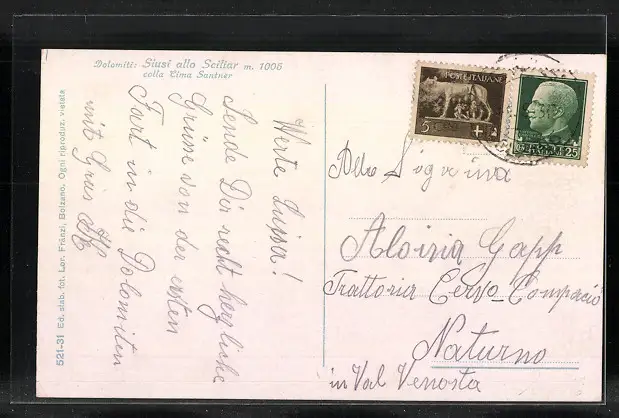 Dolomiti: Siusi allo Sciliar m. 1005
colla Cima Santner
Werte Luisa!
Sende Dir recht herzliche
Grüsse von der ersten
Fart in die Dolomiten
mit Grus
521-31 Ed. stab. fot. Lor. Fränzl, Bolzano. Ogni riproduz. vietata
POSTE ITALIANE
5 CENT
25
Alla Signina
Aloisia Gapp
Trattoria Cervo Compació
Naturno
in Val Venosta